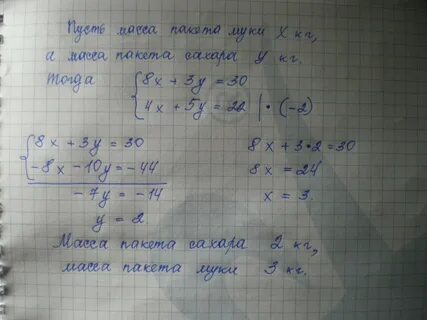 Пусть масса пакета муки x кг,
а масса пакета сахара y кг.
Тогда { 8x + 3y = 30
4x + 5y = 22 | · (-2)
{ 8x + 3y = 30
-8x - 10y = -44
-7y = -14
y = 2
8x + 3·2 = 30
8x = 24
x = 3.
Масса пакета сахара 2 кг,
масса пакета муки 3 кг.